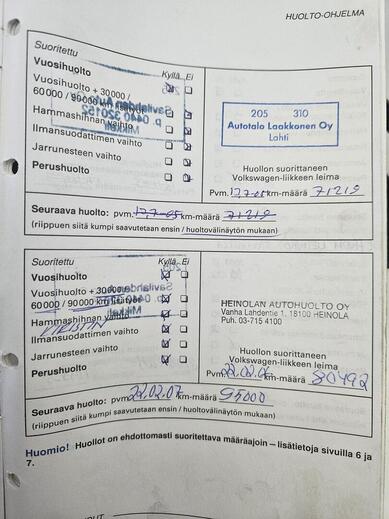 HUOLTO-OHJELMA
Suoritettu
Kyllä Ei
Vuosihuolto
Vuosihuolto + 30000 /
60000 / 90000 km lisätyöt
Hammashihnan vaihto
Ilmansuodattimen vaihto
Jarrunesteen vaihto
Perushuolto
205 310
Autotalo Laakkonen Oy
Lahti
Huollon suorittaneen
Volkswagen-liikkeen leima
Pvm. 12.7-05 km-määrä 71219
Seuraava huolto: pvm. 12.7-05 km-määrä 71219
(riippuen siitä kumpi saavutetaan ensin / huoltovälinäytön mukaan)
Suoritettu
Kyllä Ei
Vuosihuolto
Vuosihuolto + 30000 /
60000 / 90000 km lisätyöt
Hammashihnan vaihto
Ilmansuodattimen vaihto
Jarrunesteen vaihto
Perushuolto
HEINOLAN AUTOHUOLTO OY
Vanha Lahdentie 1, 18100 HEINOLA
Puh. 03-715 4100
Huollon suorittaneen
Volkswagen-liikkeen leima
Pvm. 22.02.06 km-määrä 80492
Seuraava huolto: pvm. 22.02.07 km-määrä 95000
(riippuen siitä kumpi saavutetaan ensin / huoltovälinäytön mukaan)
Huomio! Huollot on ehdottomasti suoritettava määräajoin – lisätietoja sivuilla 6 ja
7.